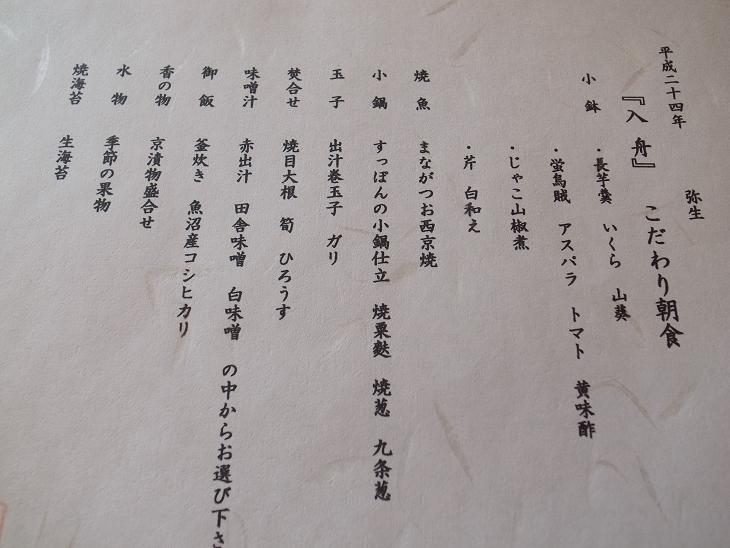 平成二十四年 弥生
『入舟』 こだわり朝食
小鉢 ・長芋羹 いくら 山葵
・蛍烏賊 アスパラ トマト 黄味酢
・じゃこ山椒煮
・芹 白和え
焼魚 まながつお西京焼
小鍋 すっぽんの小鍋仕立 焼粟麩 焼葱 九条葱
玉子 出汁巻玉子 ガリ
焚合せ 焼目大根 筍 ひろうす
味噌汁 赤出汁 田舎味噌 白味噌 の中からお選び下さ
御飯 釜炊き 魚沼産コシヒカリ
香の物 京漬物盛合せ
水物 季節の果物
焼海苔 生海苔